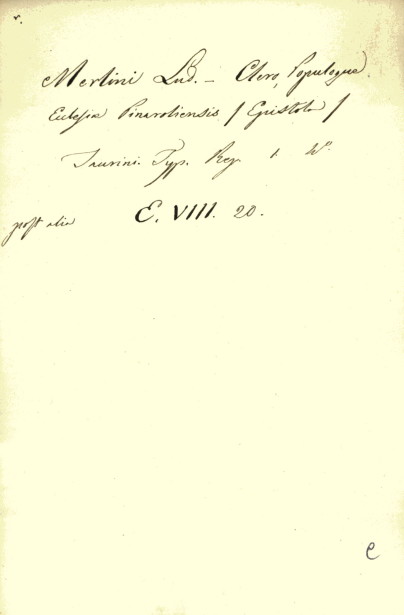 Merlini Lud. – Clero, Populoque
Ecclesiæ Pinaroliensis / Epistola /
Taurini. Typ. Reg. 
post alia E. VIII. 20.
e